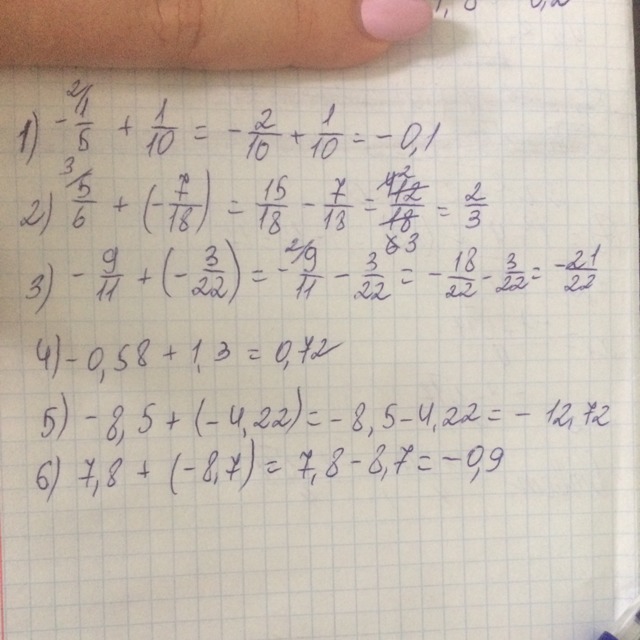 1) - 2/ 1/5 + 1/10 = - 2/10 + 1/10 = - 0,1
2) 3/ 5/6 + (- 7/18) = 15/18 - 7/18 = 12/18 = 2/3
3) - 9/11 + (- 3/22) = - 2/ 9/11 - 3/22 = - 18/22 - 3/22 = - 21/22
4) - 0,58 + 1,3 = 0,72
5) - 8,5 + (- 4,22) = - 8,5 - 4,22 = - 12,72
6) 7,8 + (- 8,7) = 7,8 - 8,7 = - 0,9